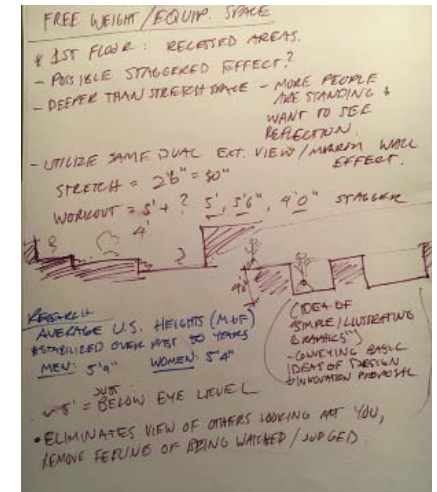 FREE WEIGHT/EQUIP. SPACE
* 1ST FLOOR: RECESSED AREAS.
- POSSIBLE STAGGERED EFFECT?
- DEEPER THAN STRETCH SPACE - MORE PEOPLE
ARE STANDING &
WANT TO SEE
REFLECTION.
- UTILIZE SAME DUAL EXT. VIEW/MIRROR WALL
EFFECT.
STRETCH = 2'6" = 30"
WORKOUT = 5' + ? 5', 5'6", 4'0" STAGGER
4'
RESEARCH
AVERAGE U.S. HEIGHTS (M&F)
*STABILIZED OVER PAST 50 YEARS
MEN: 5'9" WOMEN: 5'4"
(IDEA OF
SIMPLE/ILLUSTRATING
GRAPHICS")
- CONVEYING BASIC
IDEAS OF DESIGN
& INNOVATION PROPOSAL
JUST
5' = BELOW EYE LEVEL
• ELIMINATES VIEW OF OTHERS LOOKING AT YOU,
REMOVE FEELING OF BEING WATCHED/JUDGED.